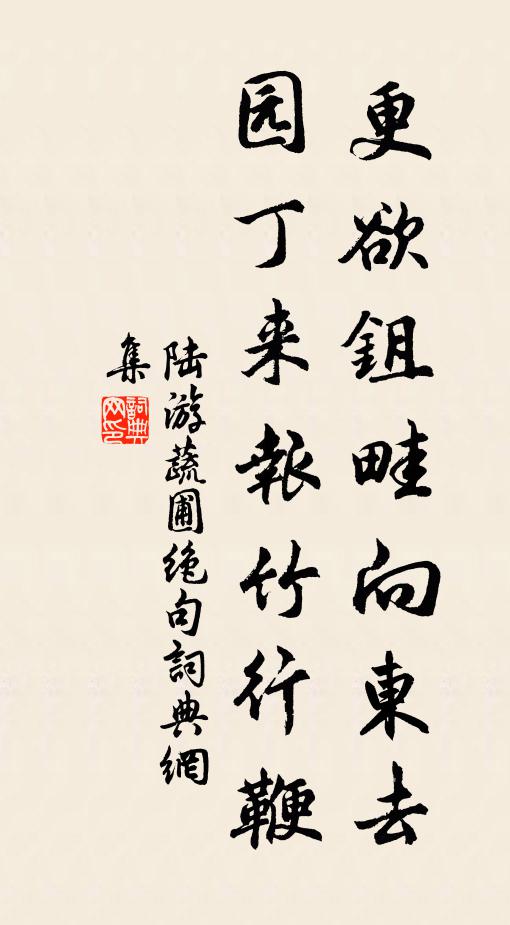 更欲鉏畦向東去
园丁来報竹行鞭
陆游蔬圃绝句詞典網
集
詞典
网印